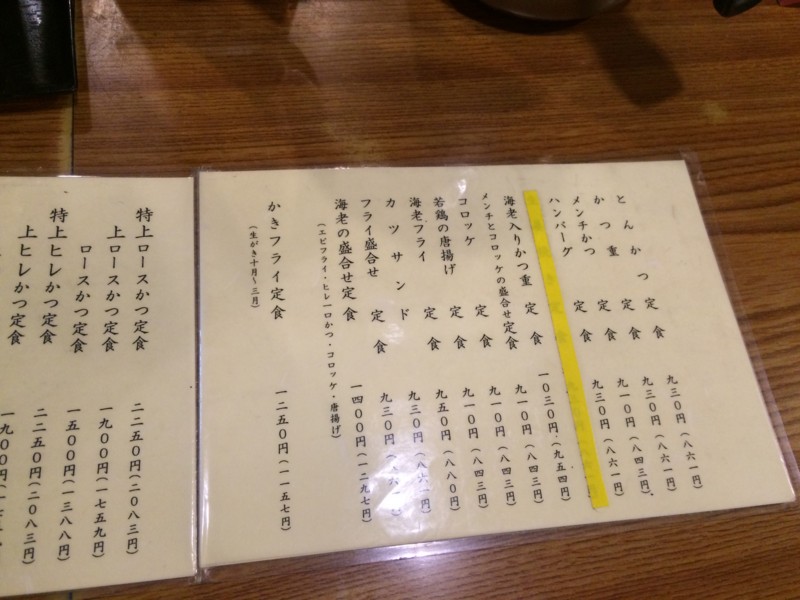 とんかつ 定食 九三〇円(八六一円)
かつ重 定食 九三〇円(八六一円)
メンチかつ 定食 九一〇円(八四三円)
ハンバーグ 定食 九三〇円(八六一円)
海老入りかつ重 定食 一〇三〇円(九五四円)
メンチとコロッケの盛合せ定食 九一〇円(八四三円)
コロッケ 定食 九一〇円(八四三円)
若鶏の唐揚げ 定食 九一〇円(八四三円)
海老フライ 定食 九五〇円(八八〇円)
カツサンド 九三〇円(八六一円)
フライ盛合せ 定食 九三〇円
海老の盛合せ定食 一四〇〇円(一二九七円)
(エビフライ・ヒレ一口かつ・コロッケ・唐揚げ)
かきフライ定食 一二五〇円(一一五七円)
(生がき十月〜三月)
特上ロースかつ定食 二二五〇円(二〇八三円)
上ロースかつ定食 一九〇〇円(一七五九円)
ロースかつ定食 一五〇〇円(一三八八円)
特上ヒレかつ定食 二二五〇円(二〇八三円)
上ヒレかつ定食 一九〇〇円